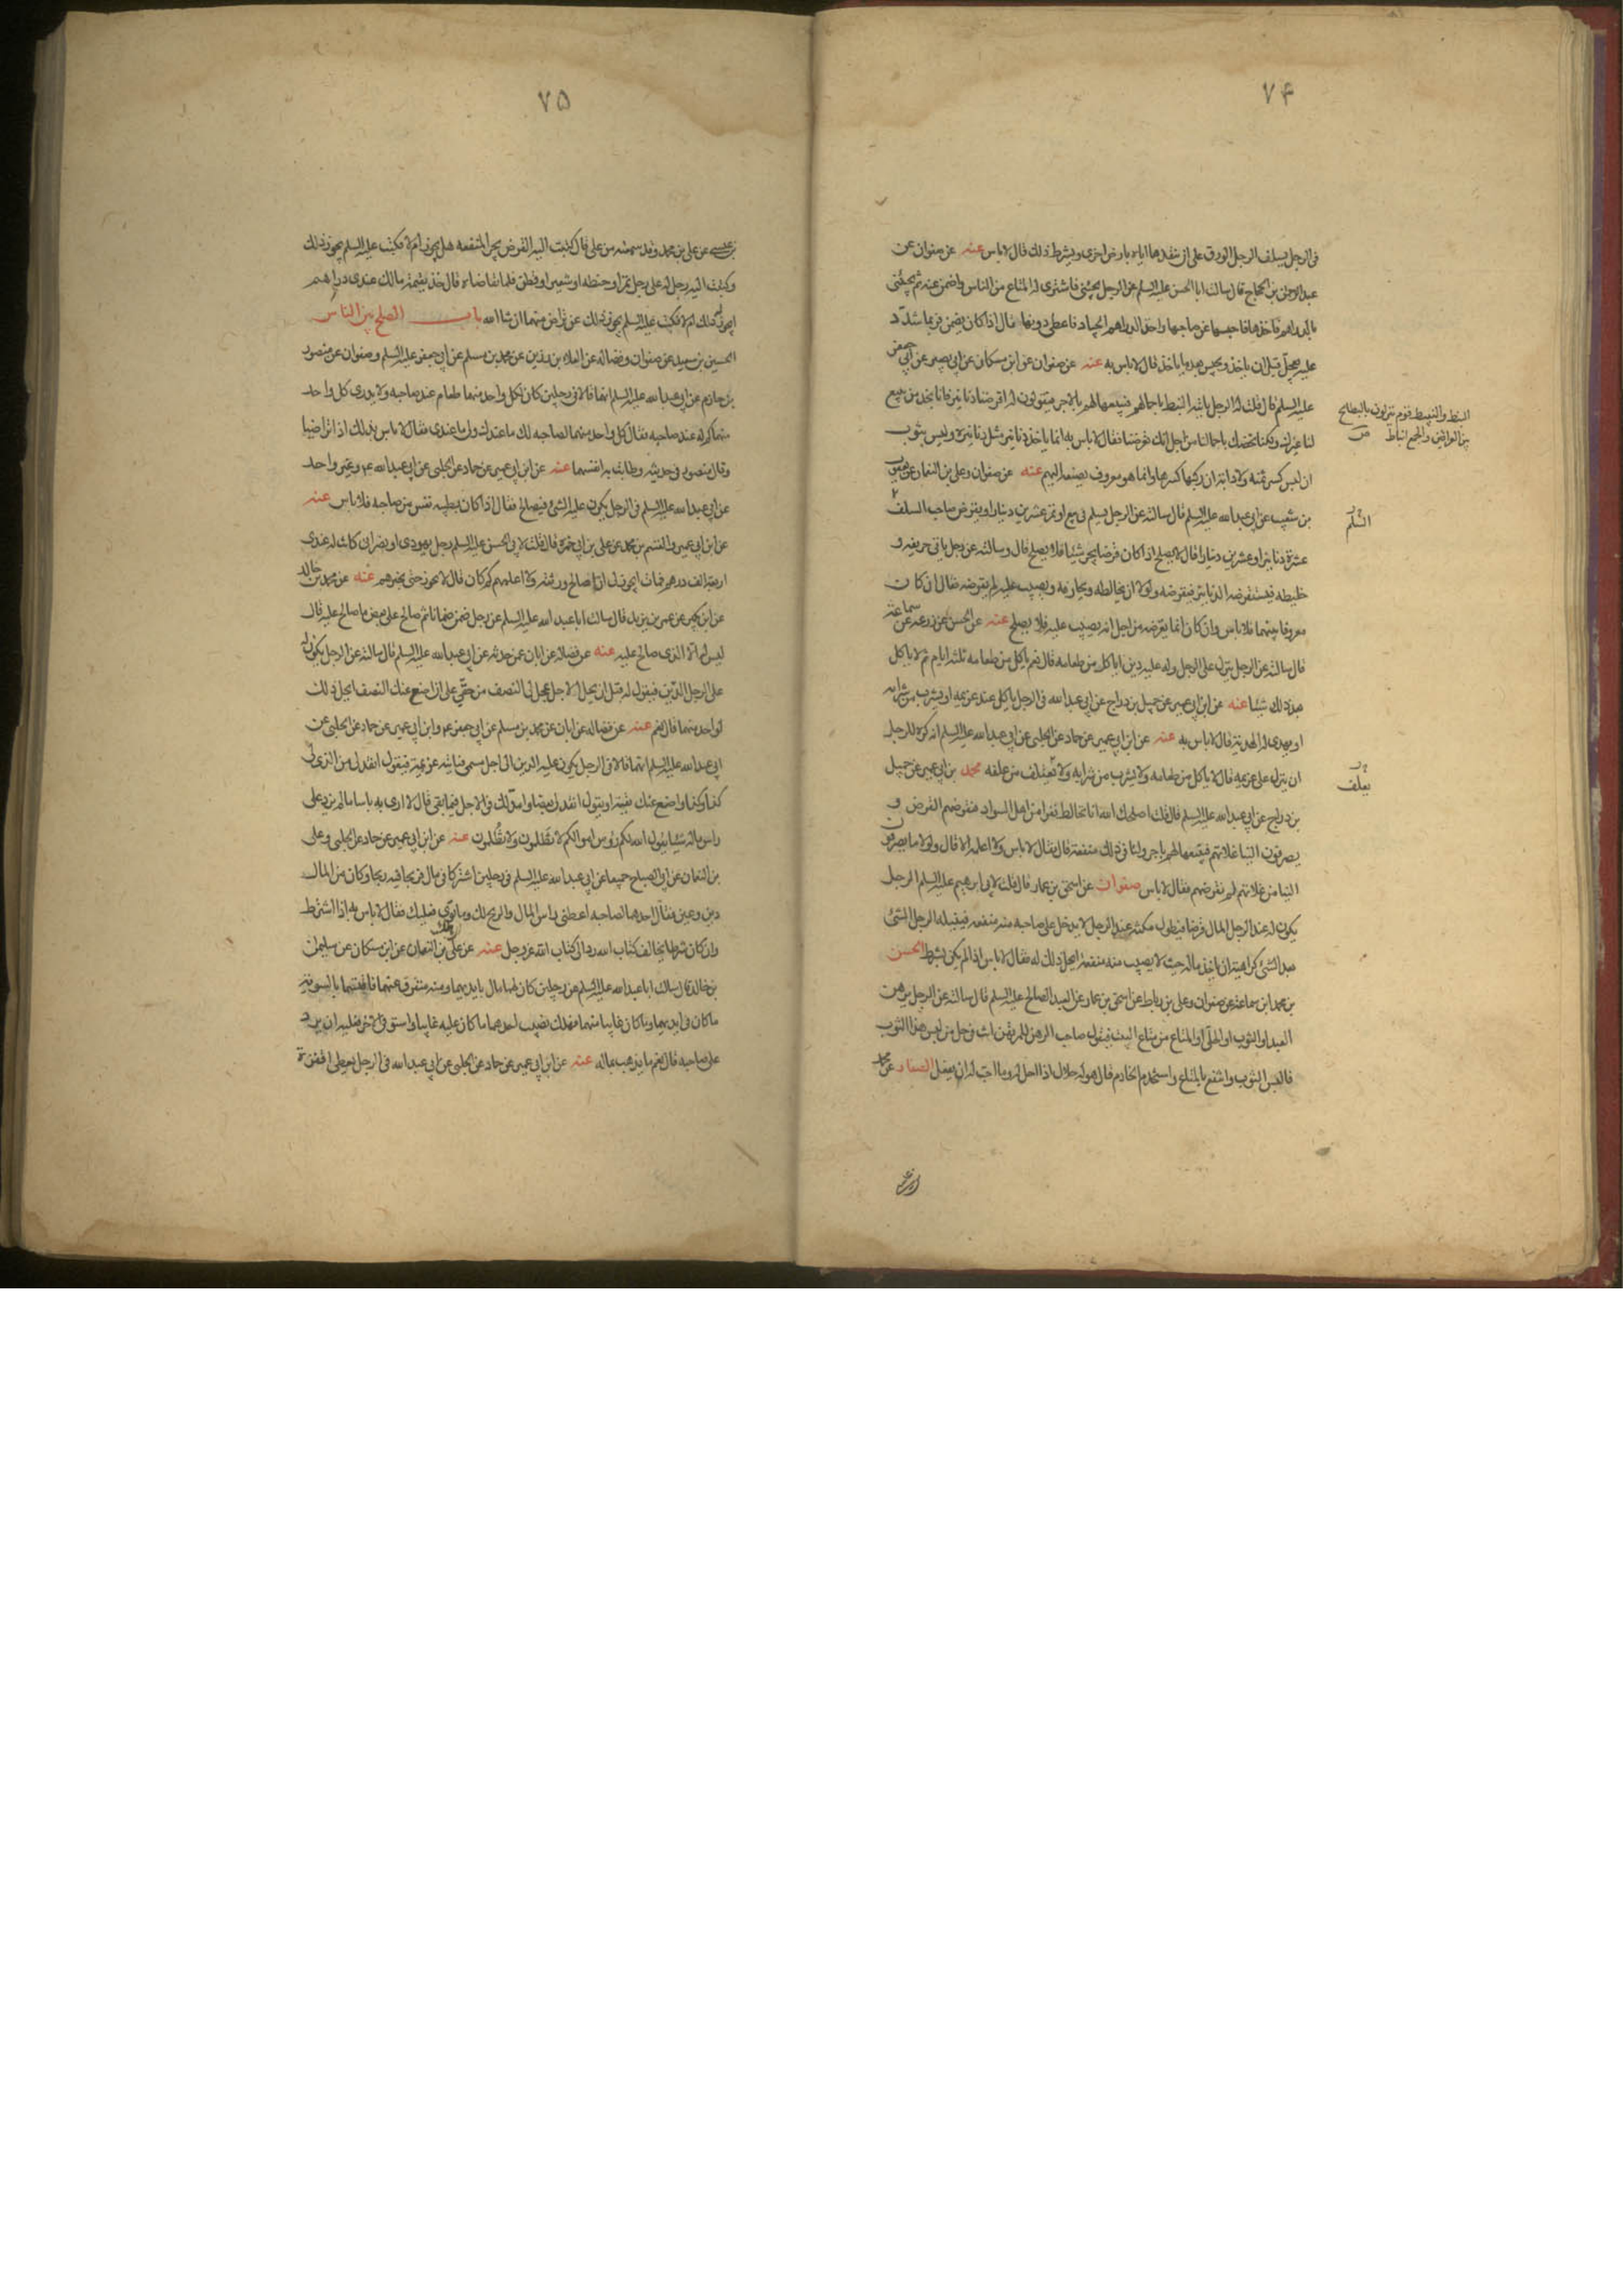 ٧۴
فى الرجل يسلف الرجل الورق على ان ينقدها اياه بارض اخرى ويشترط ذلك قال لا باس عنه عن صفوان عن
عبد الرحمن بن الحجاج قال سالت ابا الحسن عليه السلم عن الرجل يجيئنى فاشترى له المتاع من الناس واضمن عنه ثم يجيئنى
بالدراهم فآخذها فاحبسها عن صاحبها واخذ الدراهم الجياد فاعطى دونها فقال اذا كان يضمن فربما شدّد
عليه يعجّل قبل ان ياخذ ويحبس بعد ما ياخذ قال لا باس به عنه عن صفوان عن ابن مسكان عن ابى بصير عن ابى جعفر
عليه السلم قال قلت له الرجل ياتيه النبط باحمالهم فيبيعها لهم بالاجر فيقولون له اقرضنا دنانير فانا نجد من يبيع
لنا غيرك ولكنا نخصك باحمالنا من اجل انك تقرضنا فقال لا باس به انما ياخذ دنانير مثل دنانيره وليس بثوب
ان لبس كسر ثمنه ولا دابة ان ركبها كسرها وانما هو معروف يصنعه اليهم عنه عن صفوان وعلى بن النعمان عن يعقوب
بن شعيب عن ابى عبد الله عليه السلم قال سالته عن الرجل يسلم فى بيع او تمر عشرين دينارا ويقرض صاحب السلف
عشرة دنانير او عشرين دينارا قال لا يصلح اذا كان قرضا يجر شيئا فلا يصلح قال وسالته عن رجل ياتى حريفه و
خليطه فيستقرضه الدنانير فيقرضه ولولا ان يخالطه ويحارفه ويصيب عليه لم يقرضه فقال ان كان
معروفا بينهما فلا باس وان كان انما يقرضه من اجل انه يصيب عليه فلا يصلح عنه عن الحسن عن زرعه عن سماعة
قال سالته عن الرجل ينزل على الرجل وله عليه دين اياكل من طعامه قال نعم ياكل من طعامه ثلثه ايام ثم لا ياكل
بعد ذلك شيئا عنه عن ابن ابى عمير عن جميل بن دراج عن ابى عبد الله فى الرجل ياكل عند غريمه او يشرب من شرابه
او يهدى له الهدية قال لا باس به عنه عن ابن ابى عمير عن حماد عن الحلبى عن ابى عبد الله عليه السلم انه كره للرجل
ان ينزل على غريمه قال لا ياكل من طعامه ولا يشرب من شرابه ولا يعتلف من علفه محمد بن ابى عمير عن جميل
بن دراج عن ابى عبد الله عليه السلم قال قلت اصلحك الله انا نخالط نفرا من اهل السواد فنقرضهم القرض و
يصرفون الينا غلاتهم فنبيعها لهم باجر ولنا فى ذلك منفعة قال فقال لا باس ولا اعلمه الا قال ولولا ما يصرفون
الينا من غلاتهم لم نقرضهم فقال لا باس صفوان عن اسحق بن عمار قال قلت لابى ابرهيم عليه السلم الرجل
يكون له عند الرجل المال قرضا فيطول مكثه عند الرجل لا يدخل على صاحبه منه منفعه فينيله الرجل الشئ
بعد الشئ كراهية ان ياخذ ماله حيث لا يصيب منه منفعة ايحل ذلك له فقال لا باس اذا لم يكن بشرط الحسن
بن محمد بن سماعة عن صفوان وعلى بن رباط عن اسحق بن عمار عن العبد الصالح عليه السلم قال سالته عن الرجل يرهن
العبد او الثوب او الحلى او المتاع من متاع البيت فيقول صاحب الرهن للمرتهن انت فى حل من لبس هذا الثوب
فالبس الثوب وانتفع بالمتاع واستخدم الخادم قال هو له حلال اذا احل له وما احب له ان يفعل الصفار عن محمد
النبط والنبيط قوم ينزلون بالبطايح
بين العراقين والجمع انباط
السّلم
يعلف
٧۵
بن عيسى عن على بن محمد وقد سمعته من على قال كتبت اليه القرض يجر المنفعه هل يجوز ام لا فكتب عليه السلم يجوز ذلك
وكتبت اليه رجل له على رجل تمر او حنطه او شعير او قطن فلما تقاضاه قال خذ بقيمة مالك عندى دراهم
ايجوز له ذلك ام لا فكتب عليه السلم يجوز ذلك عن تراض منهما ان شا الله باب الصلح بين الناس
الحسين بن سعيد عن صفوان وفضاله عن العلاء بن رزين عن محمد بن مسلم عن ابى جعفر عليه السلم وصفوان عن منصور
بن حازم عن ابى عبد الله عليه السلم انهما قالا فى رجلين كان لكل واحد منهما طعام عند صاحبه ولا يدرى كل واحد
منهما كم له عند صاحبه فقال كل واحد منهما لصاحبه لك ما عندك ولى ما عندى فقال لا باس بذلك اذا تراضيا
وقال منصور فى حديثه وطابت به انفسهما عنه عن ابن ابى عمير عن حماد عن الحلبى عن ابى عبد الله ع وغير واحد
عن ابى عبد الله عليه السلم فى الرجل يكون عليه الشئ فيصالح فقال اذا كان بطيبه نفس من صاحبه فلا باس عنه
عن ابن ابى عمير والقسم بن محمد عن على بن ابى حمزة قال قلت لابى الحسن عليه السلم رجل يهودى او نصرانى كانت له عندى
اربعة الف درهم فمات ايجوز لى ان اصالح ورثته ولا اعلمهم كم كان قال لا يجوز حتى يخبرهم عنه عن محمد بن خالد
عن ابن بكير عن عمر بن يزيد قال سالت ابا عبد الله عليه السلم عن رجل ضمن ضمانا ثم صالح على بعض ما صالح عليه قال
ليس له الا الذى صالح عليه عنه عن فضاله عن ابان عمن حدثه عن ابى عبد الله عليه السلم قال سالته عن الرجل يكون له
على الرجل الدين فيقول له قبل ان يحل الاجل عجل لى النصف من حقى على ان اضع عنك النصف ايحل ذلك
لواحد منهما قال نعم عنه عن فضاله عن ابان عن محمد بن مسلم عن ابى جعفر ع وابن ابى عمير عن حماد عن الحلبى عن
ابى عبد الله عليه السلم انهما قالا فى الرجل يكون عليه الدين الى اجل مسمى فياتيه غريمه فيقول انقد لى من الذى لى
كذا وكذا واضع عنك بقيته او يقول انقد لى بعضا وامد لك فى الاجل فيما بقى قال لا ارى به باسا ما لم يزد على
راس ماله شيئا يقول الله لكم رؤس اموالكم لا تَظلمون ولا تُظلمون عنه عن ابن ابى عمير عن حماد عن الحلبى وعلى
بن النعمان عن ابى الصباح جميعا عن ابى عبد الله عليه السلم فى رجلين اشتركا فى مال فربحا فيه ربحا وكان من المال
دين وعين فقال احدهما لصاحبه اعطنى راس المال والربح لك وما توى فعليك فقال لا باس به اذا اشترط
وان كان شرطا يخالف كتاب الله رد الى كتاب الله عز وجل عنه عن على بن النعمان عن ابن مسكان عن سليمان
بن خالد قال سالت ابا عبد الله عليه السلم عن رجلين كان لهما مال بايديهما ومنه متفرق عنهما فاقتسما بالسوية
ما كان فى ايديهما وما كان غايبا عنهما فهلك نصيب احدهما ما كان عليه غايبا واستوفى الاخر فعليه ان يرد
على صاحبه قال نعم ما يذهب بماله عنه عن ابن ابى عمير عن حماد عن الحلبى عن ابى عبد الله فى الرجل يعطى اقفزة